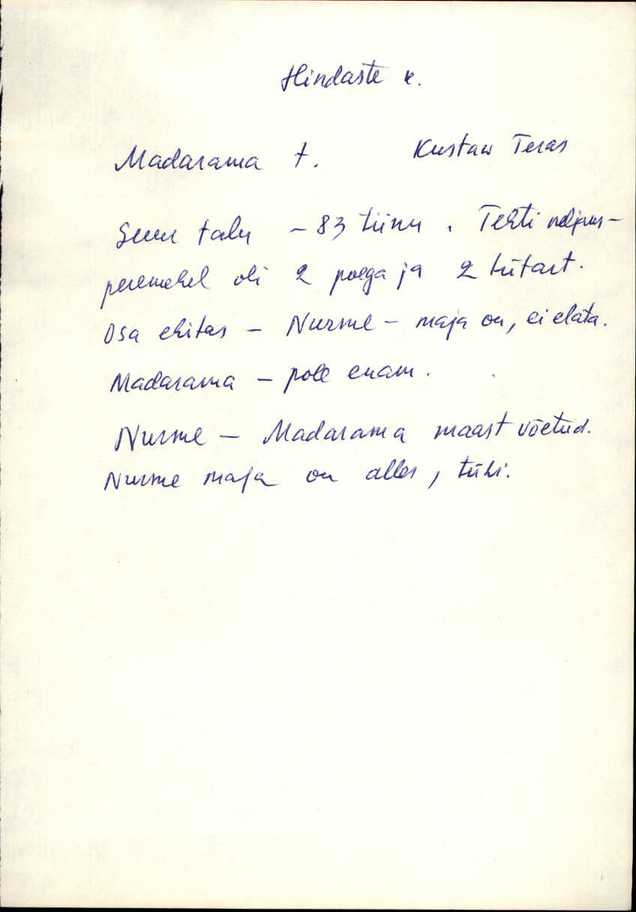 Hindaste k.
Madarama t. Kustav Teras
Suur talu – 83 tiinu. Tehti neljaks –
peremehel oli 2 poega ja 2 tütart.
Osa ehitas – Nurme – maja on, ei elata.
Madarama – pole enam.
Nurme – Madarama maast võetud.
Nurme maja on alles, tühi.